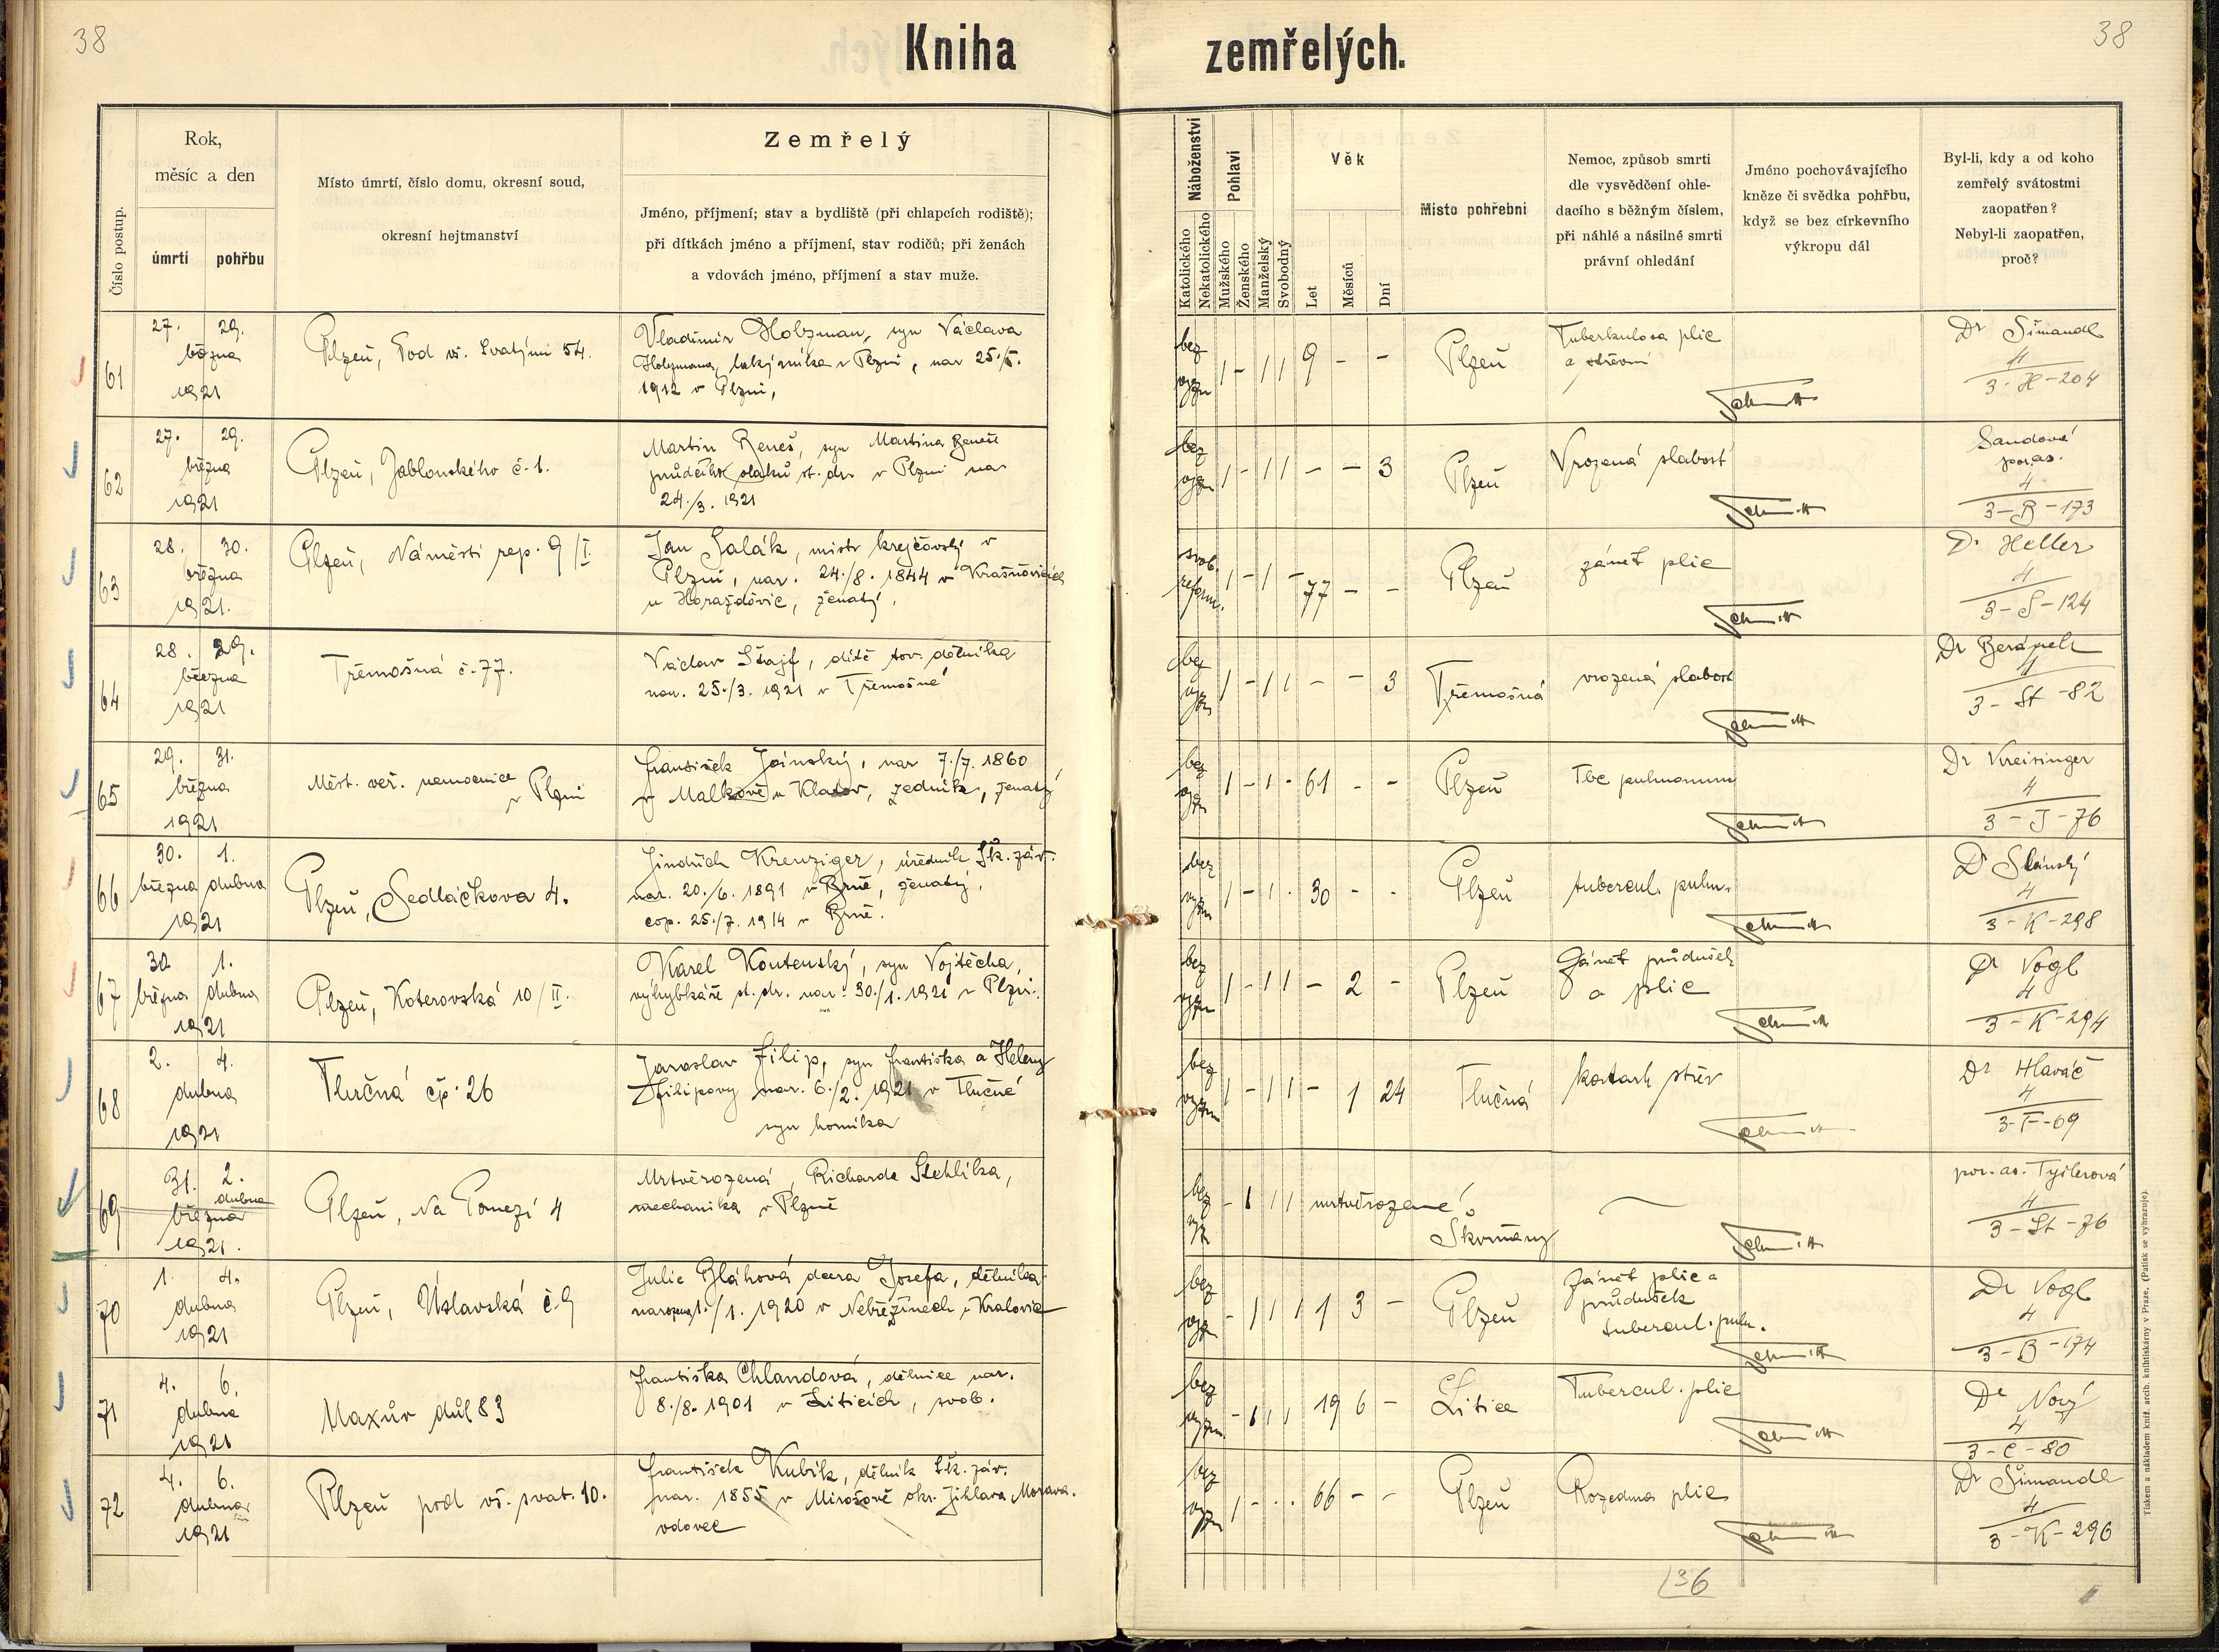 38
Kniha
zemřelých.
38
Číslo postup.
Rok,
měsíc a den
úmrtí
pohřbu
Místo úmrtí, číslo domu, okresní soud,
okresní hejtmanství
Zemřelý
Jméno, příjmení; stav a bydliště (při chlapcích rodiště);
při dítkách jméno a příjmení, stav rodičů; při ženách
a vdovách jméno, příjmení a stav muže.
Náboženství
Katolického
Nekatolického
Pohlaví
Mužského
Ženského
Manželský
Svobodný
Věk
Let
Měsíců
Dní
Místo pohřební
Nemoc, způsob smrti
dle vysvědčení ohle-
dacího s běžným číslem,
při náhlé a násilné smrti
právní ohledání
Jméno pochovávajícího
kněze či svědka pohřbu,
když se bez církevního
výkropu dál
Byl-li, kdy a od koho
zemřelý svátostmi
zaopatřen?
Nebyl-li zaopatřen,
proč?
61
27. 29.
března
1921
Plzeň, Pod vš. Svatými 54.
Vladimir Holzman, syn Václava
Holzmana, lakýrníka v Plzni, nar 25./5.
1912 v Plzni,
bez
vyzn
1 - 1 1 9 - -
Plzeň
Tuberkulosa plic
a střevní
Dr Šimandl
4
3-H-204
62
27. 29.
března
1921
Plzeň, Jablonského č. 1.
Martin Beneš, syn Martina Beneše
průvdčího vlaků st. dr. v Plzni nar
24./3. 1921
bez
vyzn
1 - 1 1 - - 3
Plzeň
Vrozená slabost
Sandová
por. as.
4
3-B-173
63
28. 30.
března
1921.
Plzeň, Náměstí rep. 9/I.
Jan Salák, mistr krejčovský v
Plzni, nar. 24./8. 1844 v Krašňovicích
u Horažďovic, ženatý.
svob.
reform.
1 - 1 - 77 - -
Plzeň
zánět plic
Dr Heller
4
3-S-124
64
28. 29.
března
1921
Třemošná č. 77.
Václav Štajf, dítě tov. dělníka
nar. 25./3. 1921 v Třemošné
bez
vyzn
1 - 1 1 - - 3
Třemošná
vrozená slabost
4
3-St-82
65
29. 31.
března
1921
Měst. veř. nemocnice
v Plzni
František Jáinský, nar 7./7. 1860
v Malkově u Klatov, zedník, ženatý
bez
vyzn
1 - 1 - 61 - -
Plzeň
Tbc pulmonum
Dr Kreisinger
4
3-J-76
66
30. 1.
března dubna
1921
Plzeň, Sedláčkova 4.
Jindřich Kreuziger, úředník Šk. záv.
nar. 20./6. 1891 v Brně, ženatý,
cop. 25./7. 1914 v Brně.
bez
vyzn
1 - 1 . 30 - -
Plzeň
tubercul. pulm.
Dr Slánský
4
3-K-298
67
30. 1.
března dubna
1921
Plzeň, Koterovská 10/II.
Karel Koutenský, syn Vojtěcha,
výhybkáře st. dr. nar. 30./1. 1921 v Plzni.
bez
vyzn
1 - 1 1 - 2 -
Plzeň
Zánět průdušek
a plic
Dr Vogl
4
3-K-294
68
2. 4.
dubna
1921
Tlučná čp. 26
Jaroslav Filip, syn Františka a Heleny
Filipovy nar. 6./2. 1921 v Tlučné
syn horníka
bez
vyzn
1 - 1 1 - 1 24
Tlučná
katarh střev
Dr Hlaváč
4
3-F-69
69
31. 2.
dubna
března
1921.
Plzeň, Na Pomezí 4
Mrtvěrozená, Richarda Stehlíka,
mechanika v Plzně
bez
vyz
- 1 1 1 mrtvěrozené!
Skvrňany
por. as. Tyilerová
4
3-St-76
70
1. 4.
dubna
1921
Plzeň, Úslavská č. 9
Julie Bláhová dcera Josefa, dělníka
narozena 1./1. 1920 v Nebřezinech u Kralovic
bez
vyzn
- 1 1 1 1 3 -
Plzeň
Zánět plic a
průdušek
tubercul. pulm.
Dr Vogl
4
3-B-174
71
4. 6.
dubna
1921
Maxův důl 83
Františka Chlandová, dělnice nar.
8./8. 1901 v Liticích, svob.
bez
vyzn.
- 1 1 1 19 6 -
Litice
Tubercul. plic
Dr Nový
4
3-C-80
72
4. 6.
dubna
1921
Plzeň pod vš. svat. 10.
František Kubík, dělník Šk. záv.
nar. 1855 v Mirošově okr. Jihlava Morava.
vdovec
bez
vyzn
1 - . . 66 - -
Plzeň
Rozedma plic
Dr Šimandl
4
3-K-296
136
Tiskem a nákladem kníž. arcib. knihtiskárny v Praze. (Patisk se vyhrazuje).